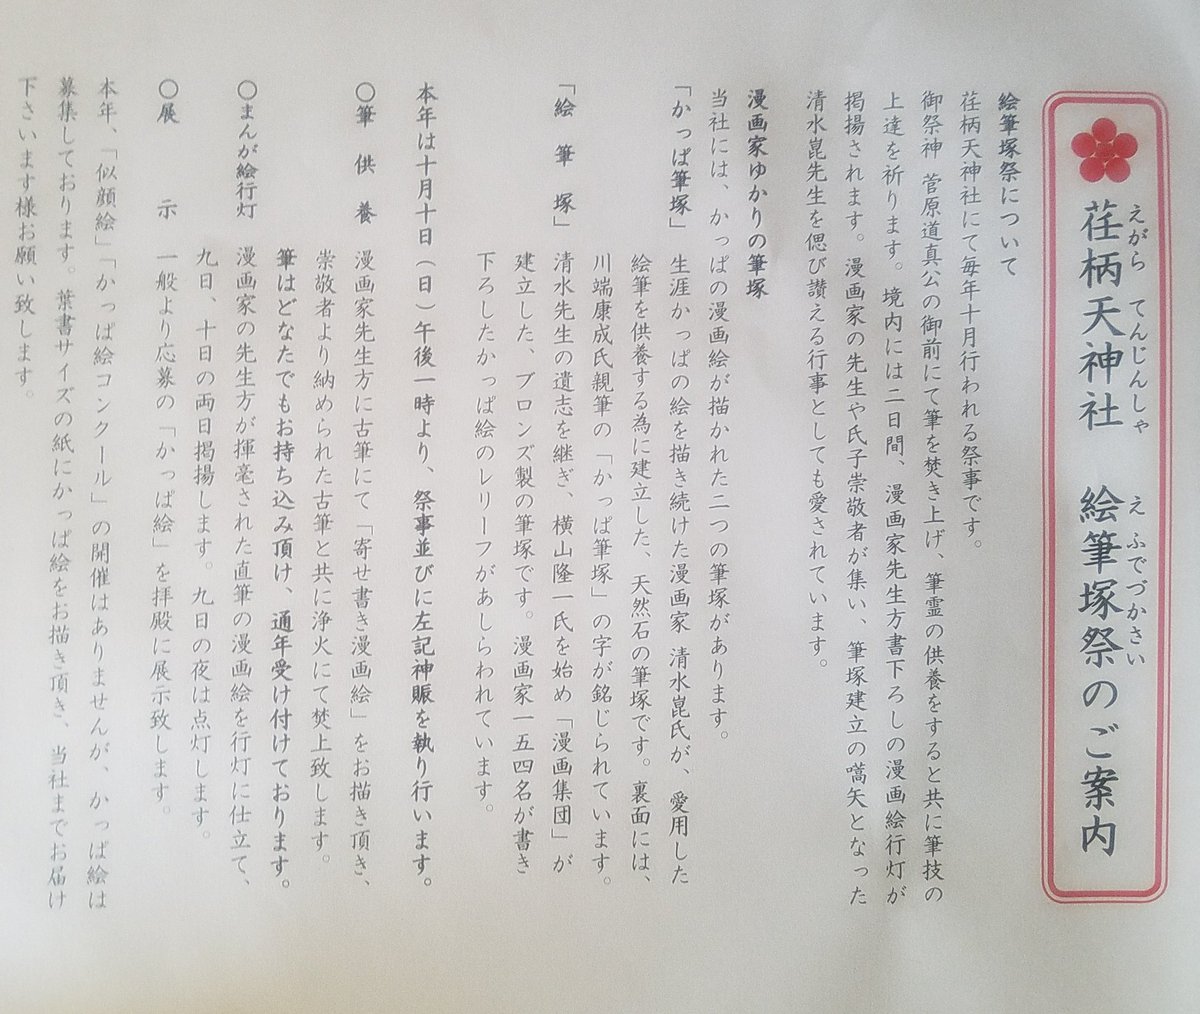 荏柄天神社　絵筆塚祭のご案内
えがら　てんじんしゃ　え　ふでづかさい
絵筆塚祭について
荏柄天神社にて毎年十月行われる祭事です。
御祭神　菅原道真公の御前にて筆を焚き上げ、筆霊の供養をすると共に筆技の
上達を祈ります。境内には二日間、漫画家先生方書下ろしの漫画絵行灯が
掲揚されます。漫画家の先生や氏子崇敬者が集い、筆塚建立の嚆矢となった
清水崑先生を偲び讃える行事としても愛されています。
漫画家ゆかりの筆塚
当社には、かっぱの漫画絵が描かれた二つの筆塚があります。
「かっぱ筆塚」　生涯かっぱの絵を描き続けた漫画家　清水崑氏が、愛用した
絵筆を供養する為に建立した、天然石の筆塚です。裏面には、
川端康成氏親筆の「かっぱ筆塚」の字が銘じられています。
「絵　筆　塚」　清水先生の遺志を継ぎ、横山隆一氏を始め「漫画集団」が
建立した、ブロンズ製の筆塚です。漫画家一五四名が書き
下ろしたかっぱ絵のレリーフがあしらわれています。
本年は十月十日（日）午後一時より、祭事並びに左記神賑を執り行います。
〇筆　供　養　漫画家先生方に古筆にて「寄せ書き漫画絵」をお描き頂き、
崇敬者より納められた古筆と共に浄火にて焚上致します。
筆はどなたでもお持ち込み頂け、通年受け付けております。
〇まんが絵行灯　漫画家の先生方が揮毫された直筆の漫画絵を行灯に仕立て、
九日、十日の両日掲揚します。九日の夜は点灯します。
〇展　　　示　一般より応募の「かっぱ絵」を拝殿に展示致します。
本年、「似顔絵」「かっぱ絵コンクール」の開催はありませんが、かっぱ絵は
募集しております。葉書サイズの紙にかっぱ絵をお描き頂き、当社までお届け
下さいます様お願い致します。